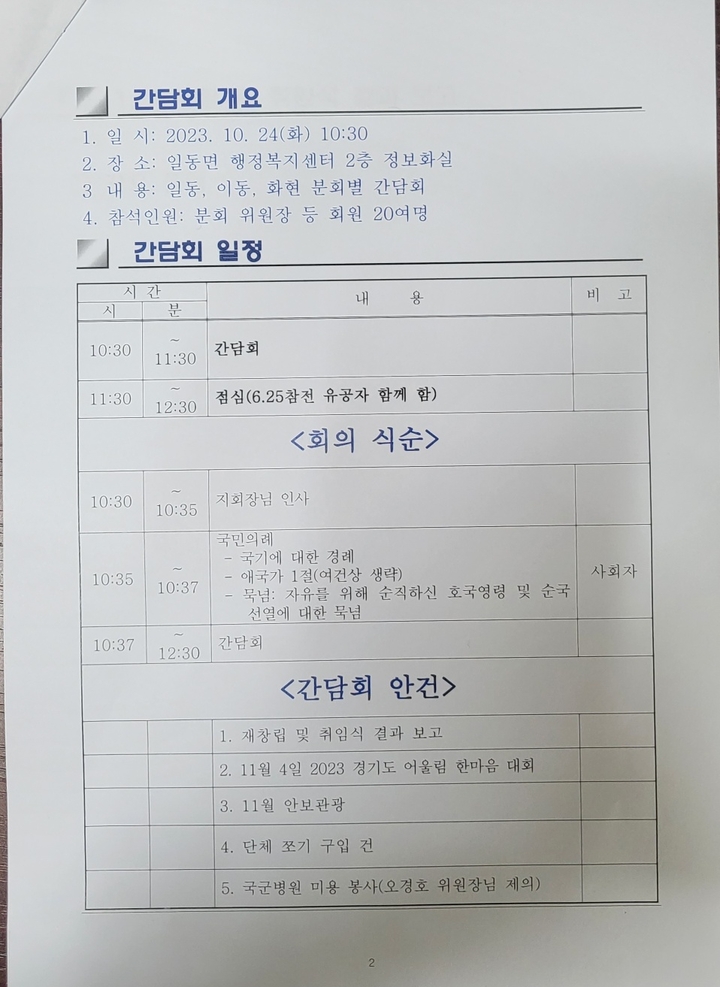 간담회 개요
1. 일 시: 2023. 10. 24(화) 10:30
2. 장 소: 일동면 행정복지센터 2층 정보화실
3 내 용: 일동, 이동, 화현 분회별 간담회
4. 참석인원: 분회 위원장 등 회원 20여명
간담회 일정
시 간
내 용
비 고
시 분
10:30 ~ 11:30 간담회
11:30 ~ 12:30 점심(6.25참전 유공자 함께 함)
<회의 식순>
10:30 ~ 10:35 지회장님 인사
국민의례
- 국기에 대한 경례
10:35 ~ 10:37 - 애국가 1절(여건상 생략) 사회자
- 묵념: 자유를 위해 순직하신 호국영령 및 순국
선열에 대한 묵념
10:37 ~ 12:30 간담회
<간담회 안건>
1. 재창립 및 취임식 결과 보고
2. 11월 4일 2023 경기도 어울림 한마음 대회
3. 11월 안보관광
4. 단체 쪼기 구입 건
5. 국군병원 미용 봉사(오경호 위원장님 제의)
2